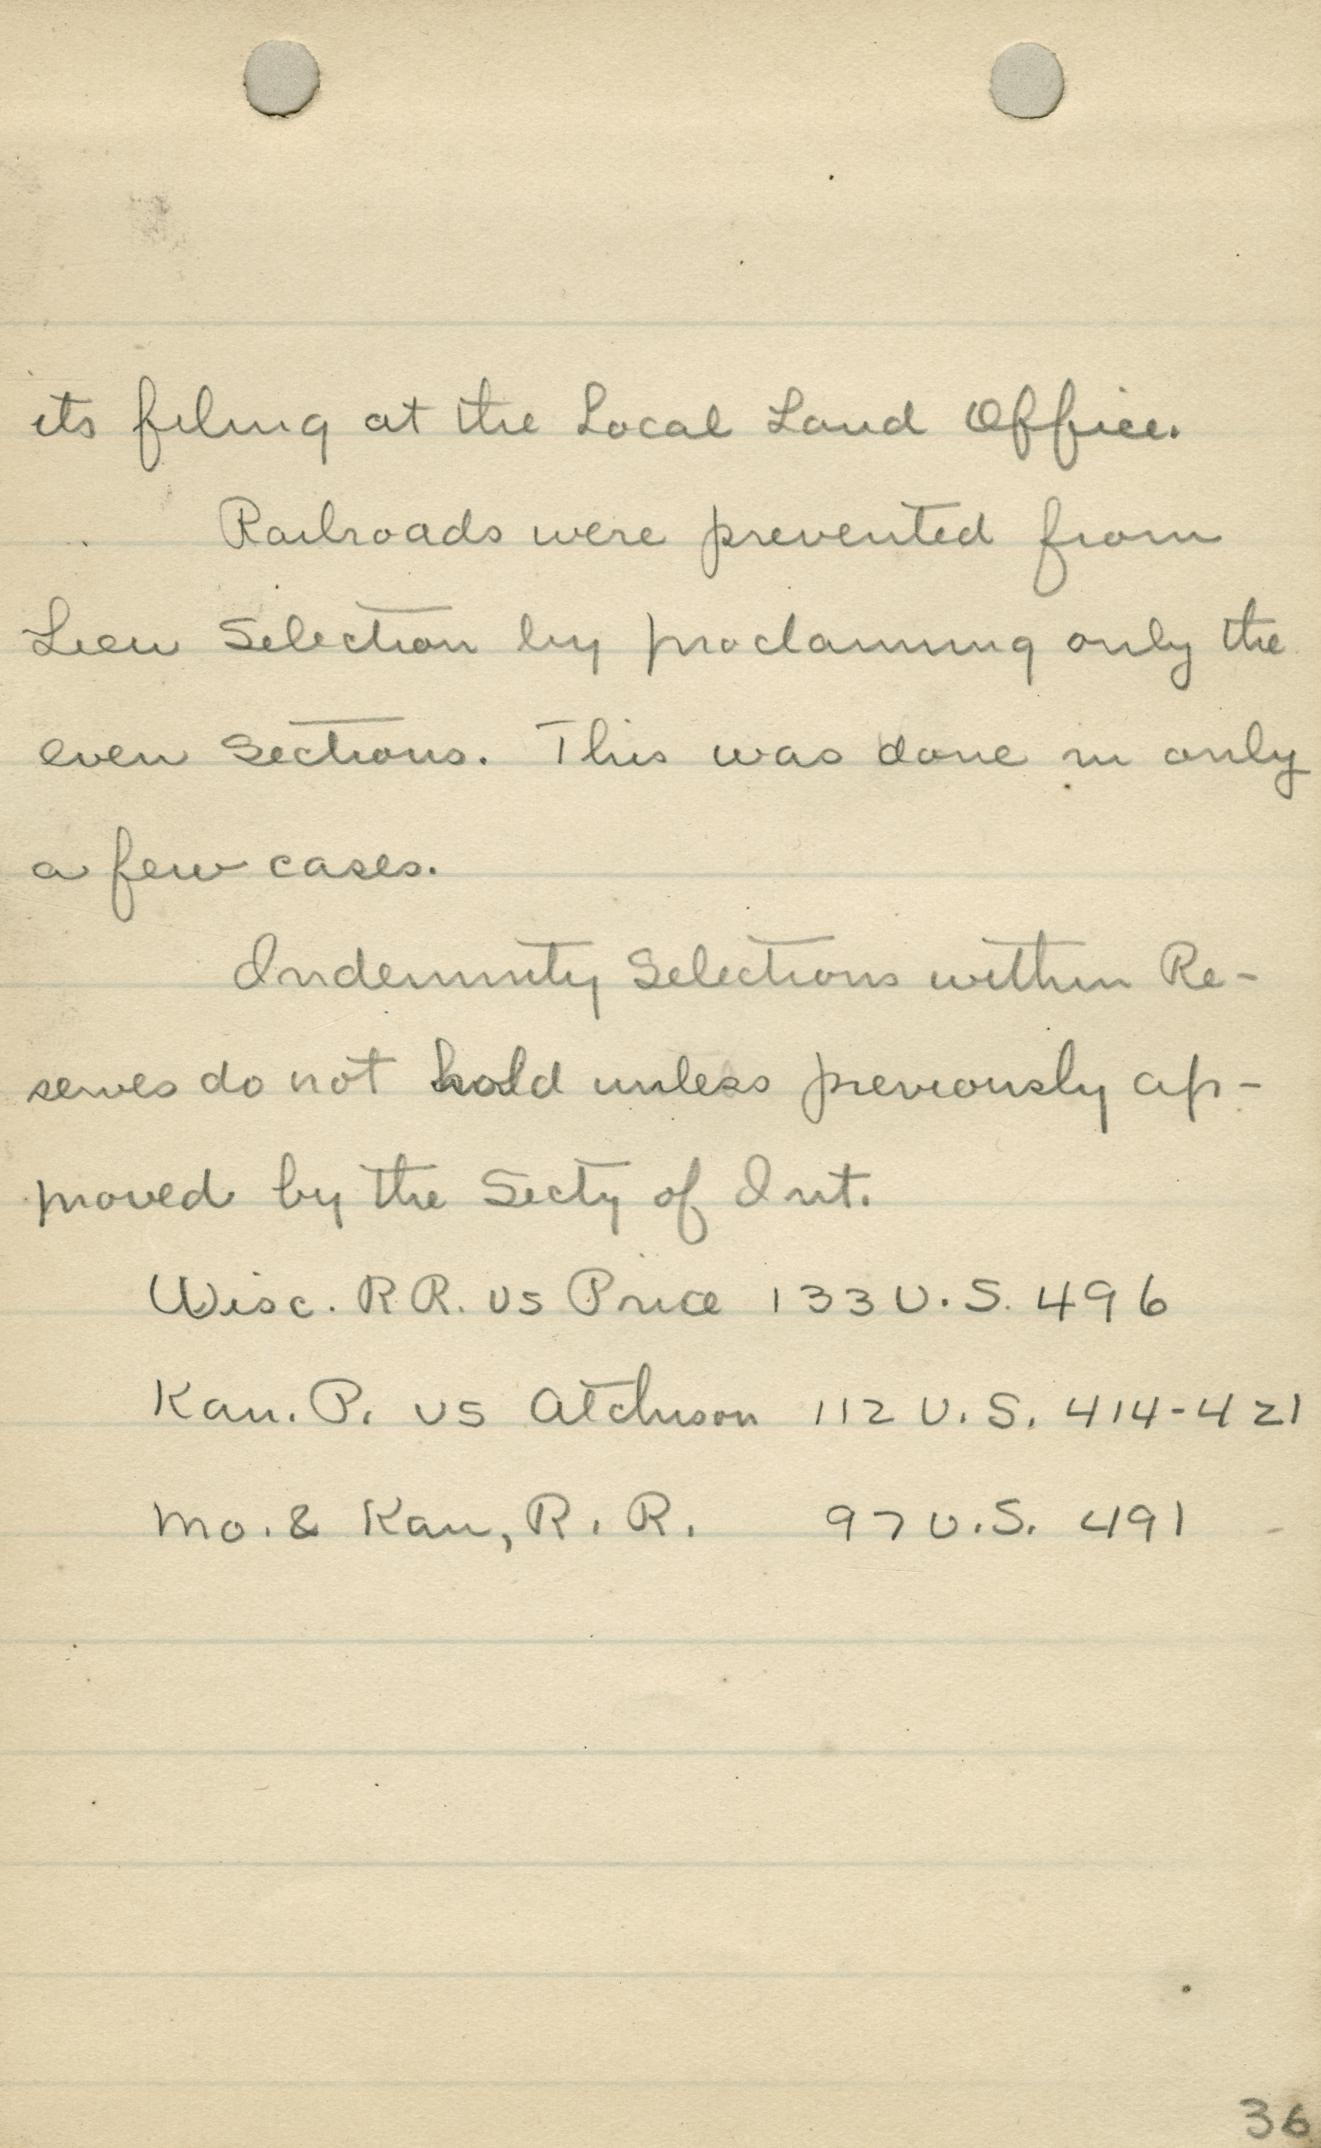 its filing at the Local Land Office.
Railroads were prevented from
Lieu Selection by proclaiming only the
even Sections. This was done in only
a few cases.
Indemnity Selections within Re-
serves do not hold unless previously ap-
proved by the Secty of Int.
Wisc. R R. vs Price 133 U.S. 496
Kan. P. vs Atchison 112 U.S. 414-421
Mo. & Kan, R. R. 97 U.S. 491
36